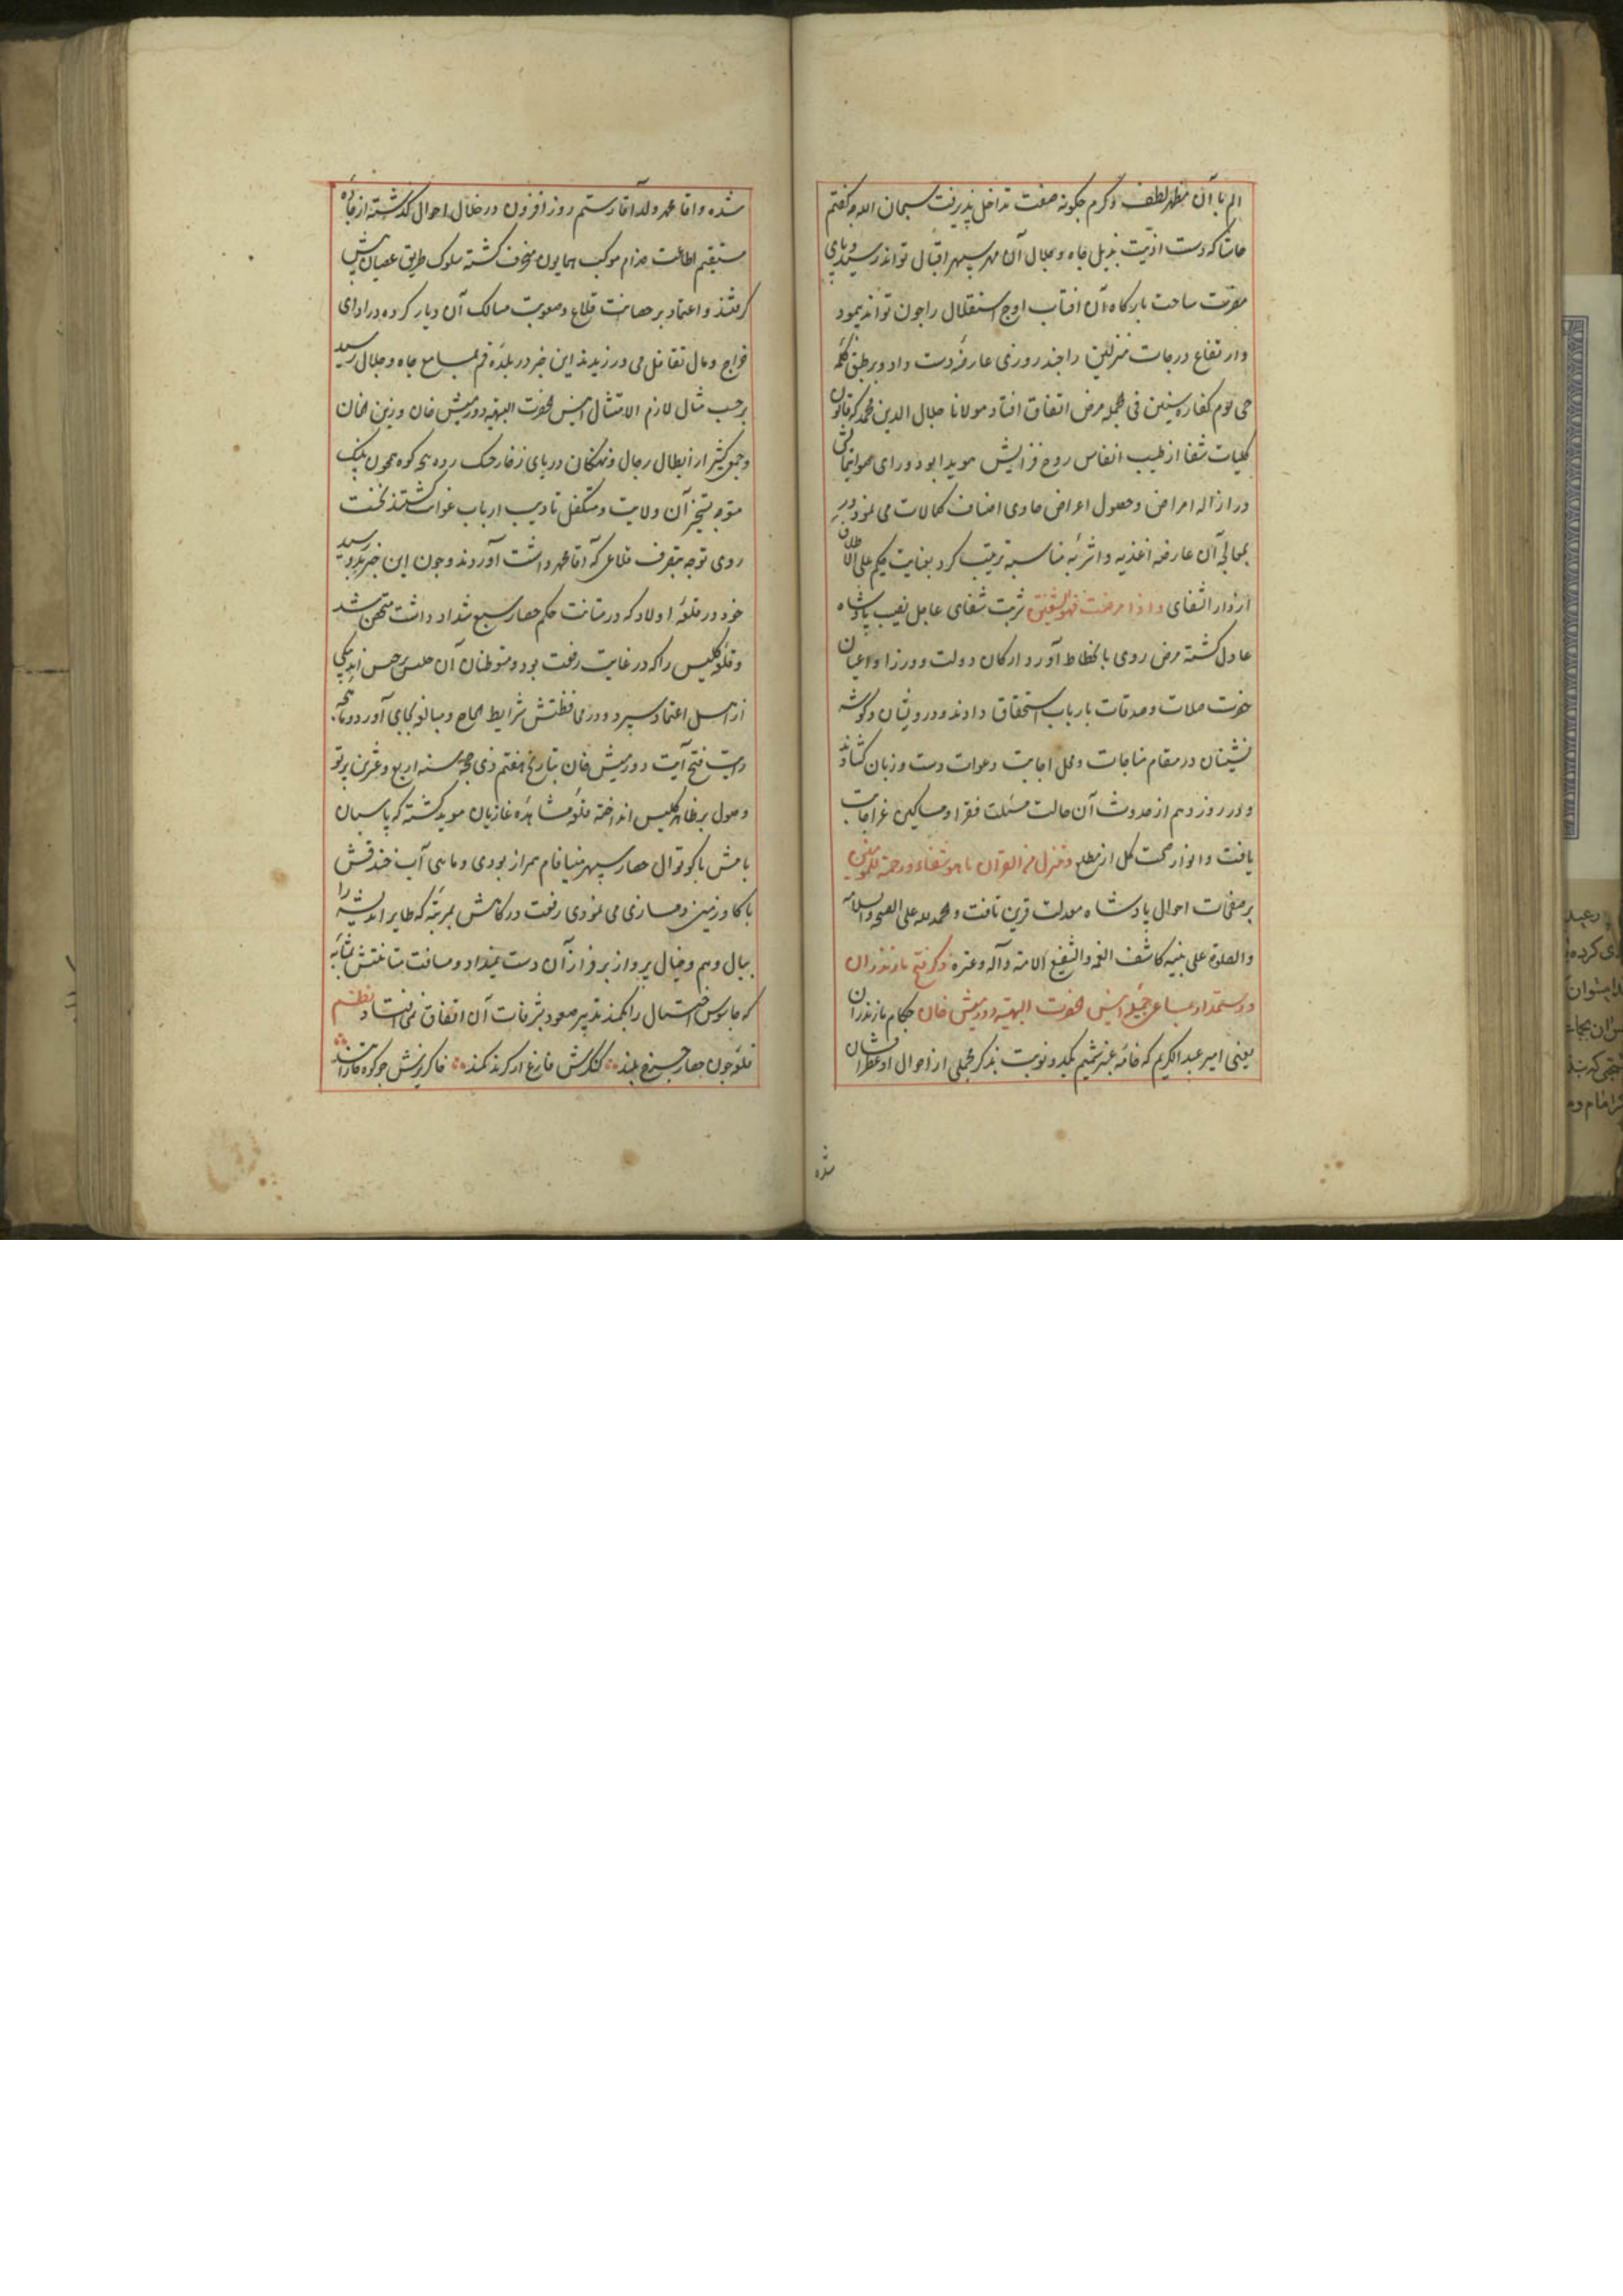 الم با آن مظهر لطف و کرم جکونه صفت تداخل پذیرفت سبحان الله جه کفتم
حاشا که دست اذیت بذیل جاه و جلال آن مهر سپهر اقبال تواند رسید و پای
مضرت ساحت بارکاه آن افتاب اوج استقلال را جون تواند پیمود
و ارتفاع درجات منزلتین را جند روزی عارضهٔ دست داد و بر طبق کلمه
حمی یوم کفاره سنین فی الجمله مرض اتفاق افتاد مولانا جلال الدین محمد که قانون
کلیات شفا از طیب انفاس روح فزایش هویدا بود و رای صوابنمایش
در ازاله امراض و حصول اعراض حاوی اصناف کمالات می نمود در
معالجهٔ آن عارضه اغذیه و اشربهٔ مناسبه ترتیب کرد بعنایت حکیم علی الاطلاق
از دار الشفای و اذا مرضت فهو یشفین شربت شفای عاجل نصیب پادشاه
عادل کشته مرض روی بانحطاط آورد و ارکان دولت و وزرا و اعیان
حضرت صلات و صدقات بارباب استحقاق دادند و درویشان و کوشه
نشینان در مقام مناجات و محل اجابت دعوات دست و زبان کشادند
و در روز دهم از حدوث آن حالت مسئلت فقرا و مساکین عز اجابت
یافت و انوار صحت کل از مطلع و ننزل من القرآن ما هو شفاء و رحمة للمومنین
بر صفحات احوال پادشاه معدلت قرین تافت و الحمد لله علی الصحة و السلامه
و الصلوة علی نبیه کاشف الغمه و الشفیع الامته و آله و عتره ذکر فتح مازندران
و رستمدار بمساعی جمیله انیس الحضرت البهیته دورمیش خان حکام مازندران
یعنی امیر عبد الکریم که خامهٔ عنبر شمیم یکدو نوبت بذکر مجملی از احوال او عطر افشان
شده
شده و اقا محمد ولد آقا رستم روز افزون در خلال احوال کذشته از جاده
مستقیم اطاعت خدام موکب همایون منحرف کشته سلوک طریق عصیان پیش
کرفتند و اعتماد بر حصانت قلاع و صعوبت مسالک آن دیار کرده در ادای
خراج و مال تغافل می ورزیدند این خبر در بلدهٔ قم بمسامع جاه و جلال رسید
بر حسب مثال لازم الامتثال انیس الحضرت البهیه دورمیش خان و زین الخان
و جمع کثیر از ابطال رجال و نهنکان دریای زخار جنک رده بجو کوه همچون پلنک
متوجه تسخیر آن ولایت و متکفل تادیب ارباب غوایت کشتند نخست
روی توجه بتصرف قلاعی که آقا محمد داشت آوردند و جون این خبر بدو رسید
خود در قلعهٔ اولاد که در متانت حکم حصار سبع شداد داشت متحصن شد
و قلعه کلیس را که در غایت رفعت بود و متوطنان آن جلیس برجیس زند بیکی
از اهل اعتماد سپرد و در محافظتش شرایط الحاح و مبالغه بجای آورد و ماهچه
رایت فتح آیت دورمیش خان بتاریخ هفتم ذی حجه سنه اربع و عشرین پرتو
وصول بر ظاهر کلیس انداخته قلعهٔ مشاهدهٔ غازیان موید کشته که پاسبان
بامش با کوتوال حصار سپهر مینا فام همراز بودی و ماهی آب خندقش
با کاو زمین دمسازی می نمودی رفعت درکاهش بمرتبهٔ که طایر اندیشه را
ببال وهم و خیال پرواز بر فراز آن دست نمیداد و مسافت متانتش بمثابهٔ
که جاسوس احتمال را بکمند تدبیر صعود بشرفات آن اتفاق نمی افتاد نظم
قلعهٔ جون حصار جرخ بلند کنکرش فارغ از کزند کمند خاکریزش جو کوه قاف